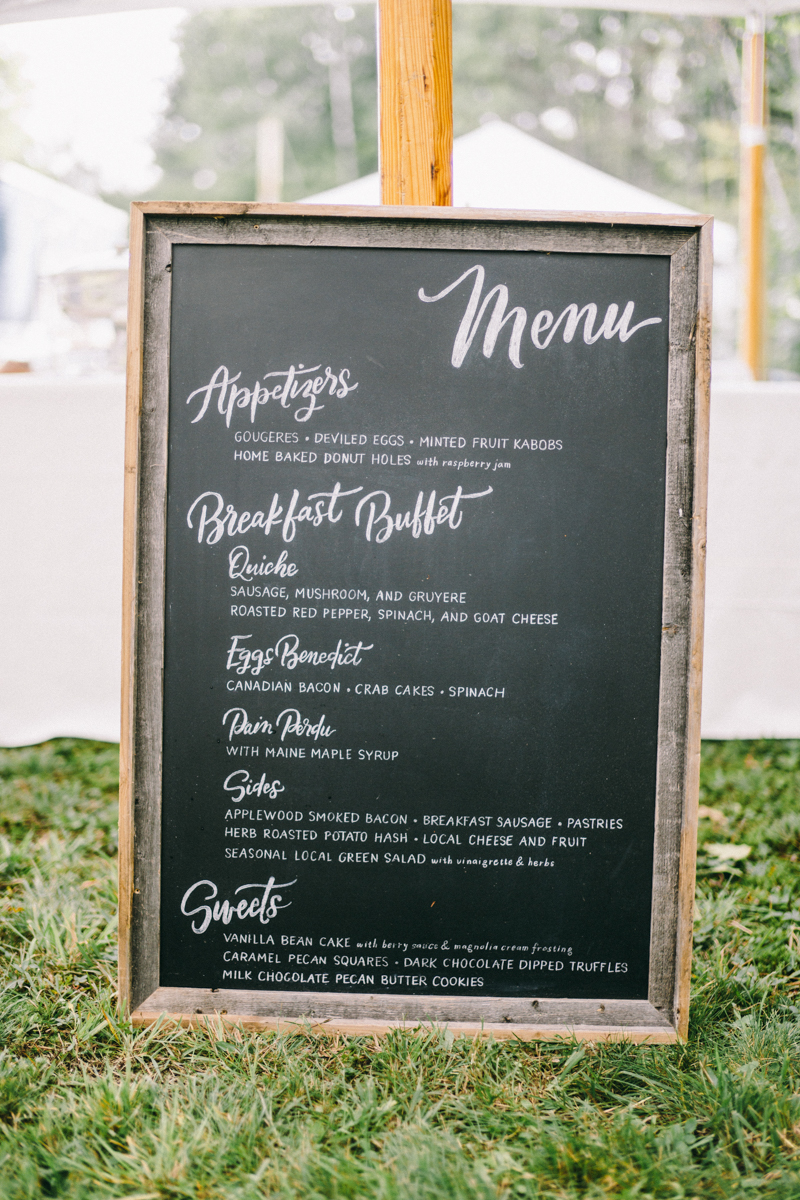 Menu
Appetizers
GOUGERES • DEVILED EGGS • MINTED FRUIT KABOBS
HOME BAKED DONUT HOLES with raspberry jam
Breakfast Buffet
Quiche
SAUSAGE, MUSHROOM, AND GRUYERE
ROASTED RED PEPPER, SPINACH, AND GOAT CHEESE
Eggs Benedict
CANADIAN BACON • CRAB CAKES • SPINACH
Pain Perdu
WITH MAINE MAPLE SYRUP
Sides
APPLEWOOD SMOKED BACON • BREAKFAST SAUSAGE • PASTRIES
HERB ROASTED POTATO HASH • LOCAL CHEESE AND FRUIT
SEASONAL LOCAL GREEN SALAD with vinaigrette & herbs
Sweets
VANILLA BEAN CAKE with berry sauce & magnolia cream frosting
CARAMEL PECAN SQUARES • DARK CHOCOLATE DIPPED TRUFFLES
MILK CHOCOLATE PECAN BUTTER COOKIES